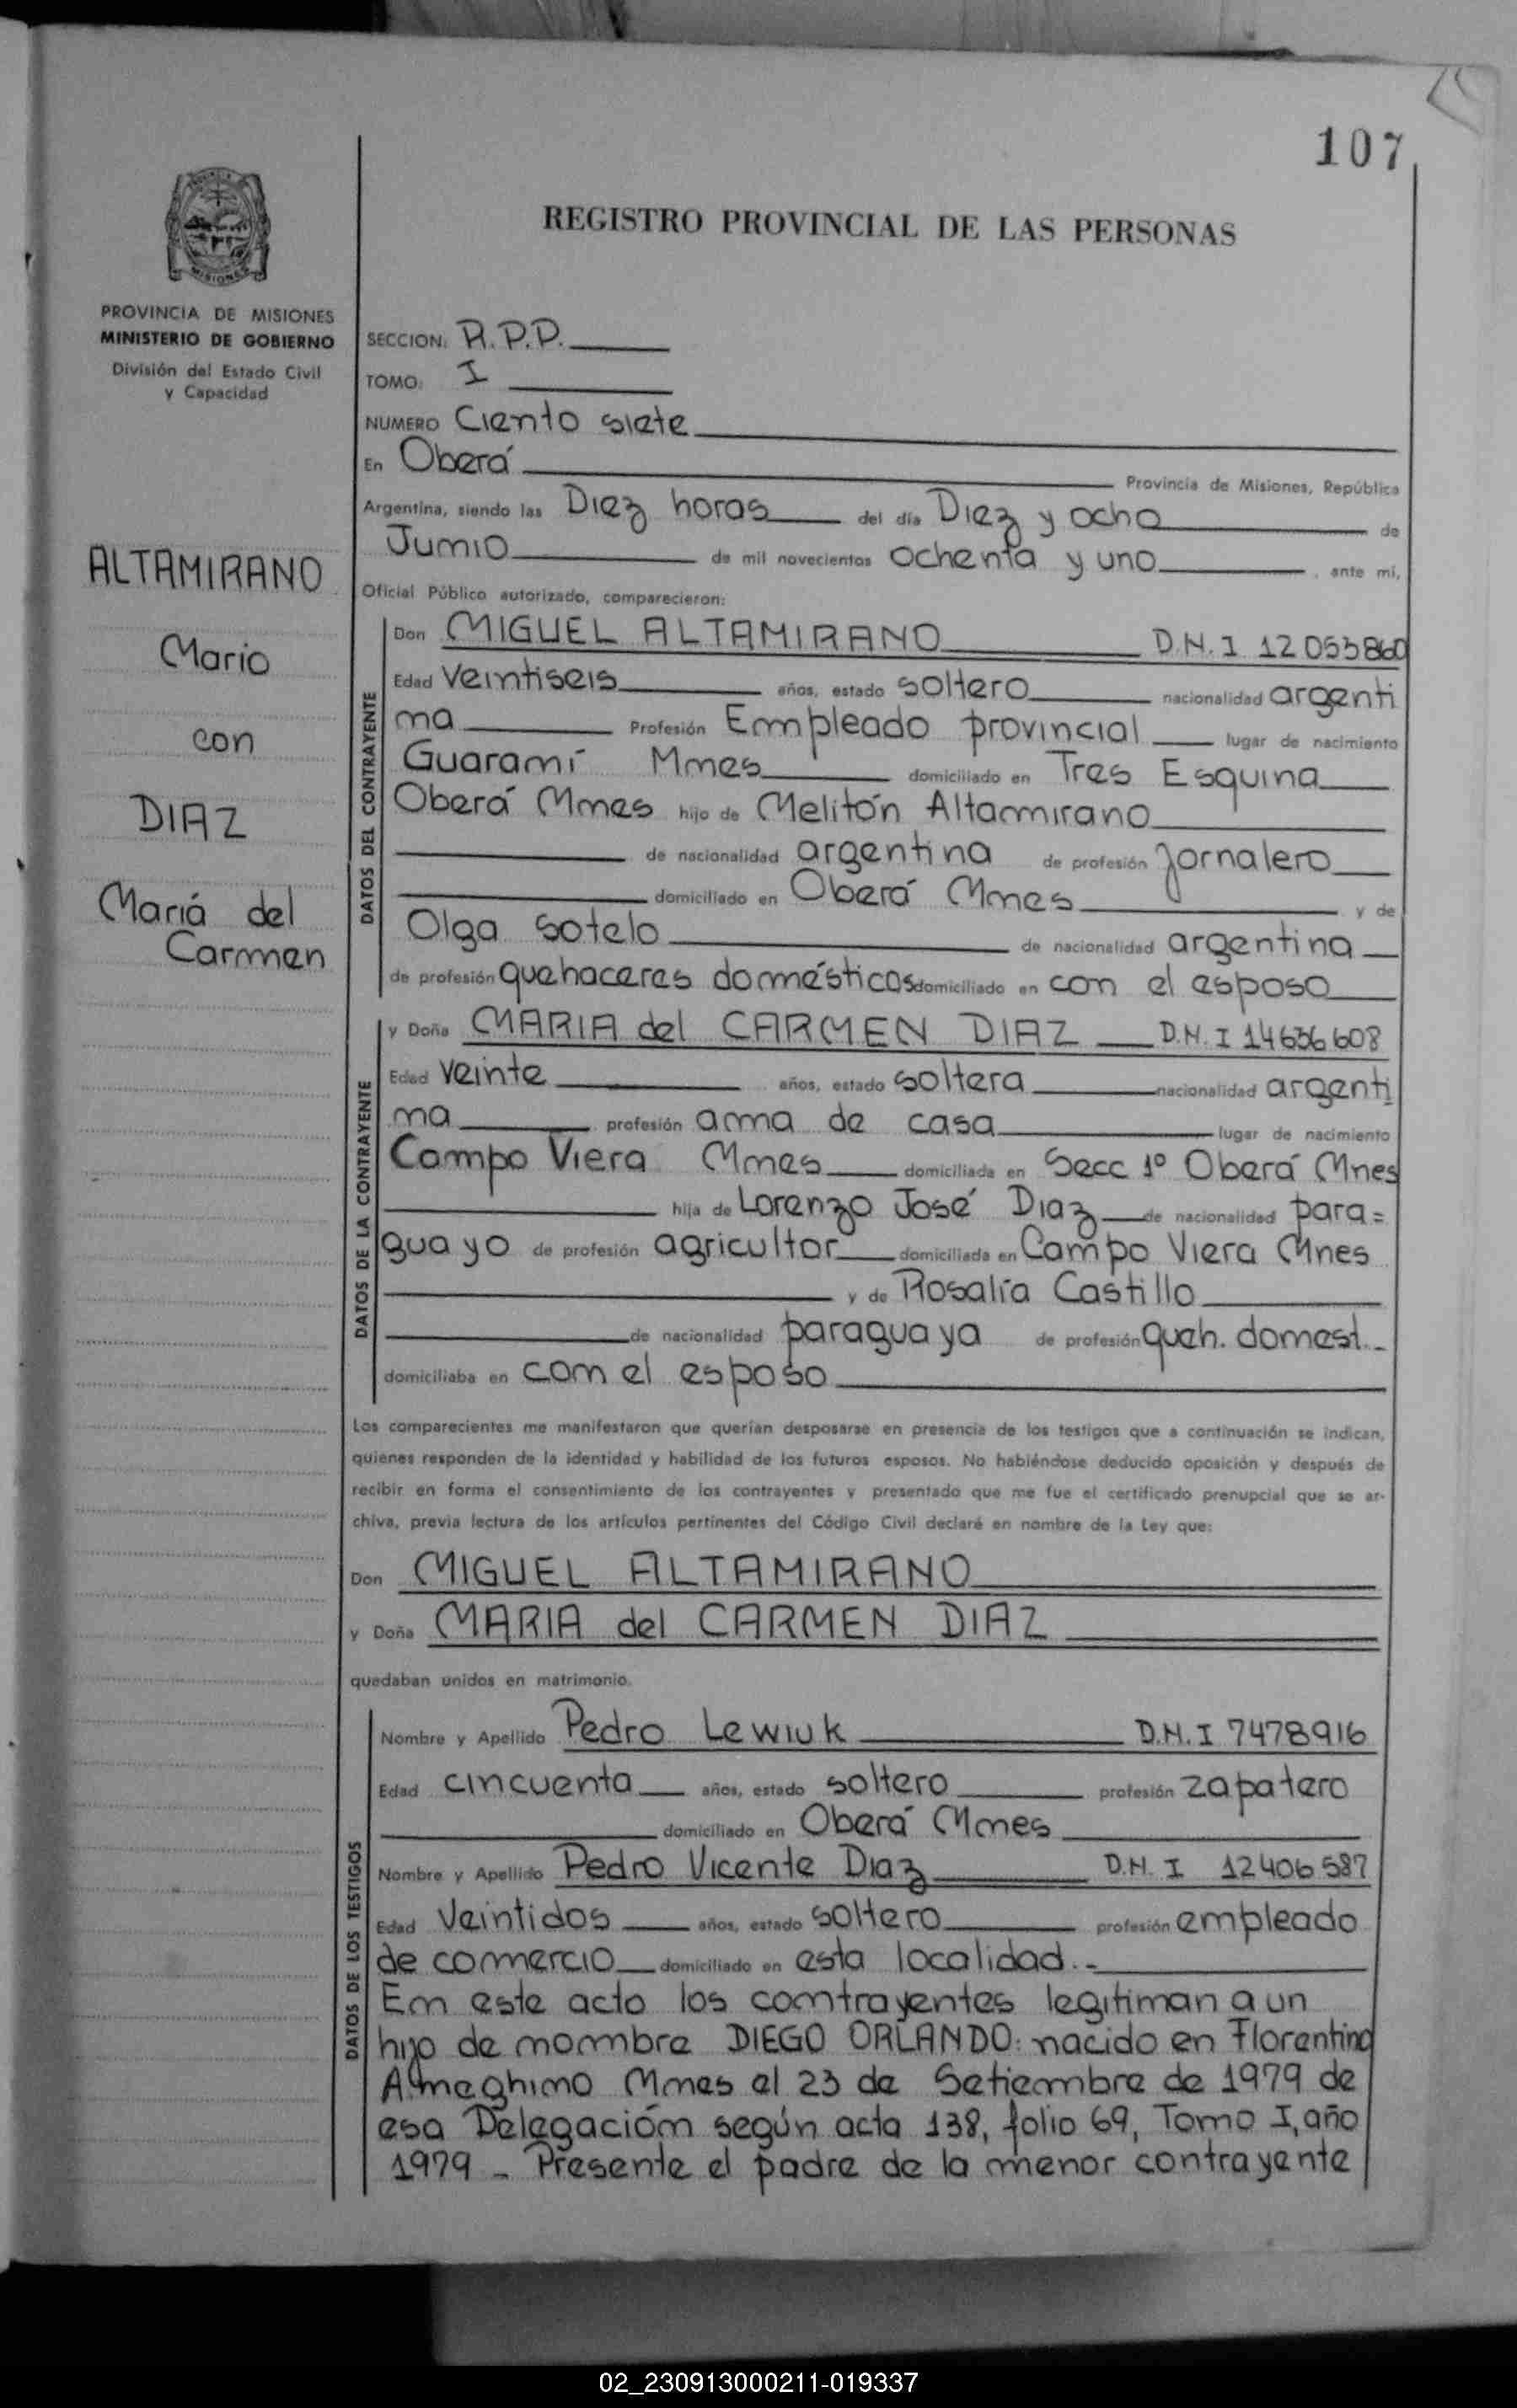 107
REGISTRO PROVINCIAL DE LAS PERSONAS
MISIONES
PROVINCIA DE MISIONES
MINISTERIO DE GOBIERNO
División del Estado Civil
y Capacidad
ALTAMIRANO
Mario
con
DIAZ
Mariá del
Carmen
SECCION: R.P.P.
TOMO: I
NUMERO Ciento siete
En Oberá Provincia de Misiones, República
Argentina, siendo las Diez horas del día Diez y ocho de
Junio de mil novecientos ochenta y uno, ante mí,
Oficial Público autorizado, comparecieron:
DATOS DEL CONTRAYENTE
Don MIGUEL ALTAMIRANO D.N.I 12 053860
Edad Veintiseis años, estado soltero nacionalidad argenti
na Profesión Empleado provincial lugar de nacimiento
Guaraní Mnes domiciliado en Tres Esquina
Oberá Mnes hijo de Melitón Altamirano
de nacionalidad argentina de profesión Jornalero
domiciliado en Oberá Mnes y de
Olga Sotelo de nacionalidad argentina
de profesión quehaceres domésticos domiciliado en con el esposo
DATOS DE LA CONTRAYENTE
y Doña MARIA del CARMEN DIAZ D.N.I 14636608
Edad Veinte años, estado soltera nacionalidad argenti
na profesión ama de casa lugar de nacimiento
Campo Viera Mnes domiciliada en Secc 1º Oberá Mnes
hija de Lorenzo José Diaz de nacionalidad para=
guayo de profesión agricultor domiciliada en Campo Viera Mnes
y de Rosalía Castillo
de nacionalidad paraguaya de profesión queh. domest.-
domiciliaba en con el esposo
Los comparecientes me manifestaron que querían desposarse en presencia de los testigos que a continuación se indican,
quienes responden de la identidad y habilidad de los futuros esposos. No habiéndose deducido oposición y después de
recibir en forma el consentimiento de los contrayentes y presentado que me fue el certificado prenupcial que se ar-
chiva, previa lectura de los artículos pertinentes del Código Civil declaré en nombre de la Ley que:
Don MIGUEL ALTAMIRANO
y Doña MARIA del CARMEN DIAZ
quedaban unidos en matrimonio.
DATOS DE LOS TESTIGOS
Nombre y Apellido Pedro Lewiuk D.N.I 7478916
Edad cincuenta años, estado soltero profesión zapatero
domiciliado en Oberá Mnes
Nombre y Apellido Pedro Vicente Diaz D.N.I 12406587
Edad Veintidos años, estado soltero profesión empleado
de comercio domiciliado en esta localidad.-
En este acto los contrayentes legitiman a un
hijo de nombre DIEGO ORLANDO: nacido en Florentino
Ameghino Mnes el 23 de Setiembre de 1979 de
esa Delegación según acta 138, folio 69, Tomo I, año
1979 - Presente el padre de la menor contrayente
02_230913000211-019337